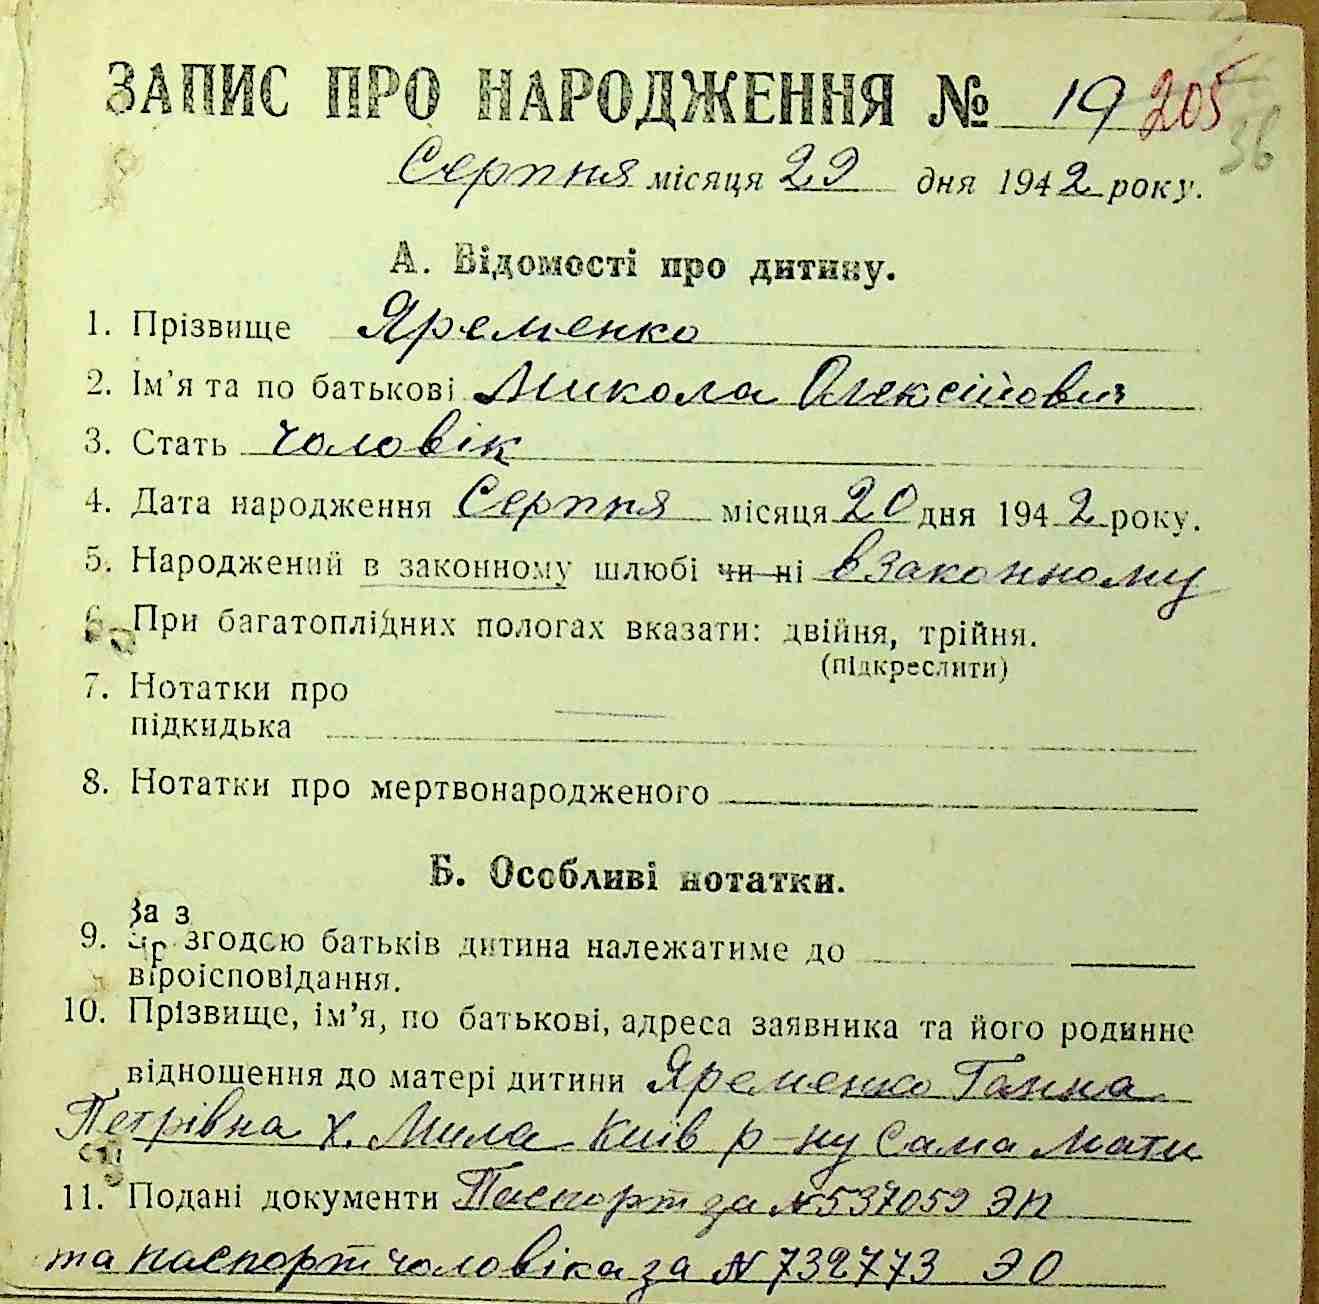 ЗАПИС ПРО НАРОДЖЕННЯ № 19 205
36
Серпня місяця 29 дня 1942 року.
А. Відомості про дитину.
1. Прізвище Яременко
2. Ім'я та по батькові Микола Олексійович
3. Стать чоловік
4. Дата народження Серпня місяця 20 дня 1942 року.
5. Народжений в законному шлюбі чи ні в законному
6. При багатоплідних пологах вказати: двійня, трійня.
(підкреслити)
7. Нотатки про
підкидька
8. Нотатки про мертвонародженого
Б. Особливі нотатки.
За з
9. згодою батьків дитина належатиме до
віроісповідання.
10. Прізвище, ім'я, по батькові, адреса заявника та його родинне
відношення до матері дитини Яременко Ганна
Петрівна х. Мила Київ р-ну сама мати
11. Подані документи Паспорт за №537059 ЭП
та паспорт чоловіка за №732773 ЭО